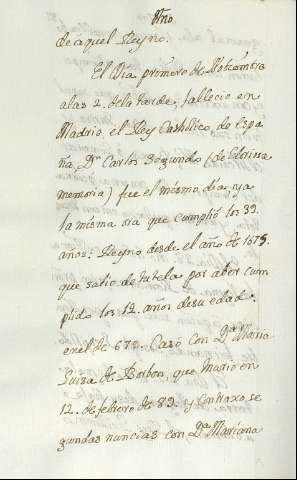 Yno.
de aquel Reyno.
El Dia primero de Nobiembre
alas 2. de la tarde, fallecio en
Madrid el Rey Catholico, de Espa
ña, Dn Carlos Segundo (de Gloriosa
memoria) fue el mismo dia, ya
la misma ora que cumplió los 39.
años: Reyno desde el año de 1675.
que salio de tutela por aber cum
plido los 12. años de su edad.
en el de 673. Casó con Da Maria
Luisa de Borbon, que murió en
12. de febrero de 89. y contraxo se
gundas nuncias con Da Mariana